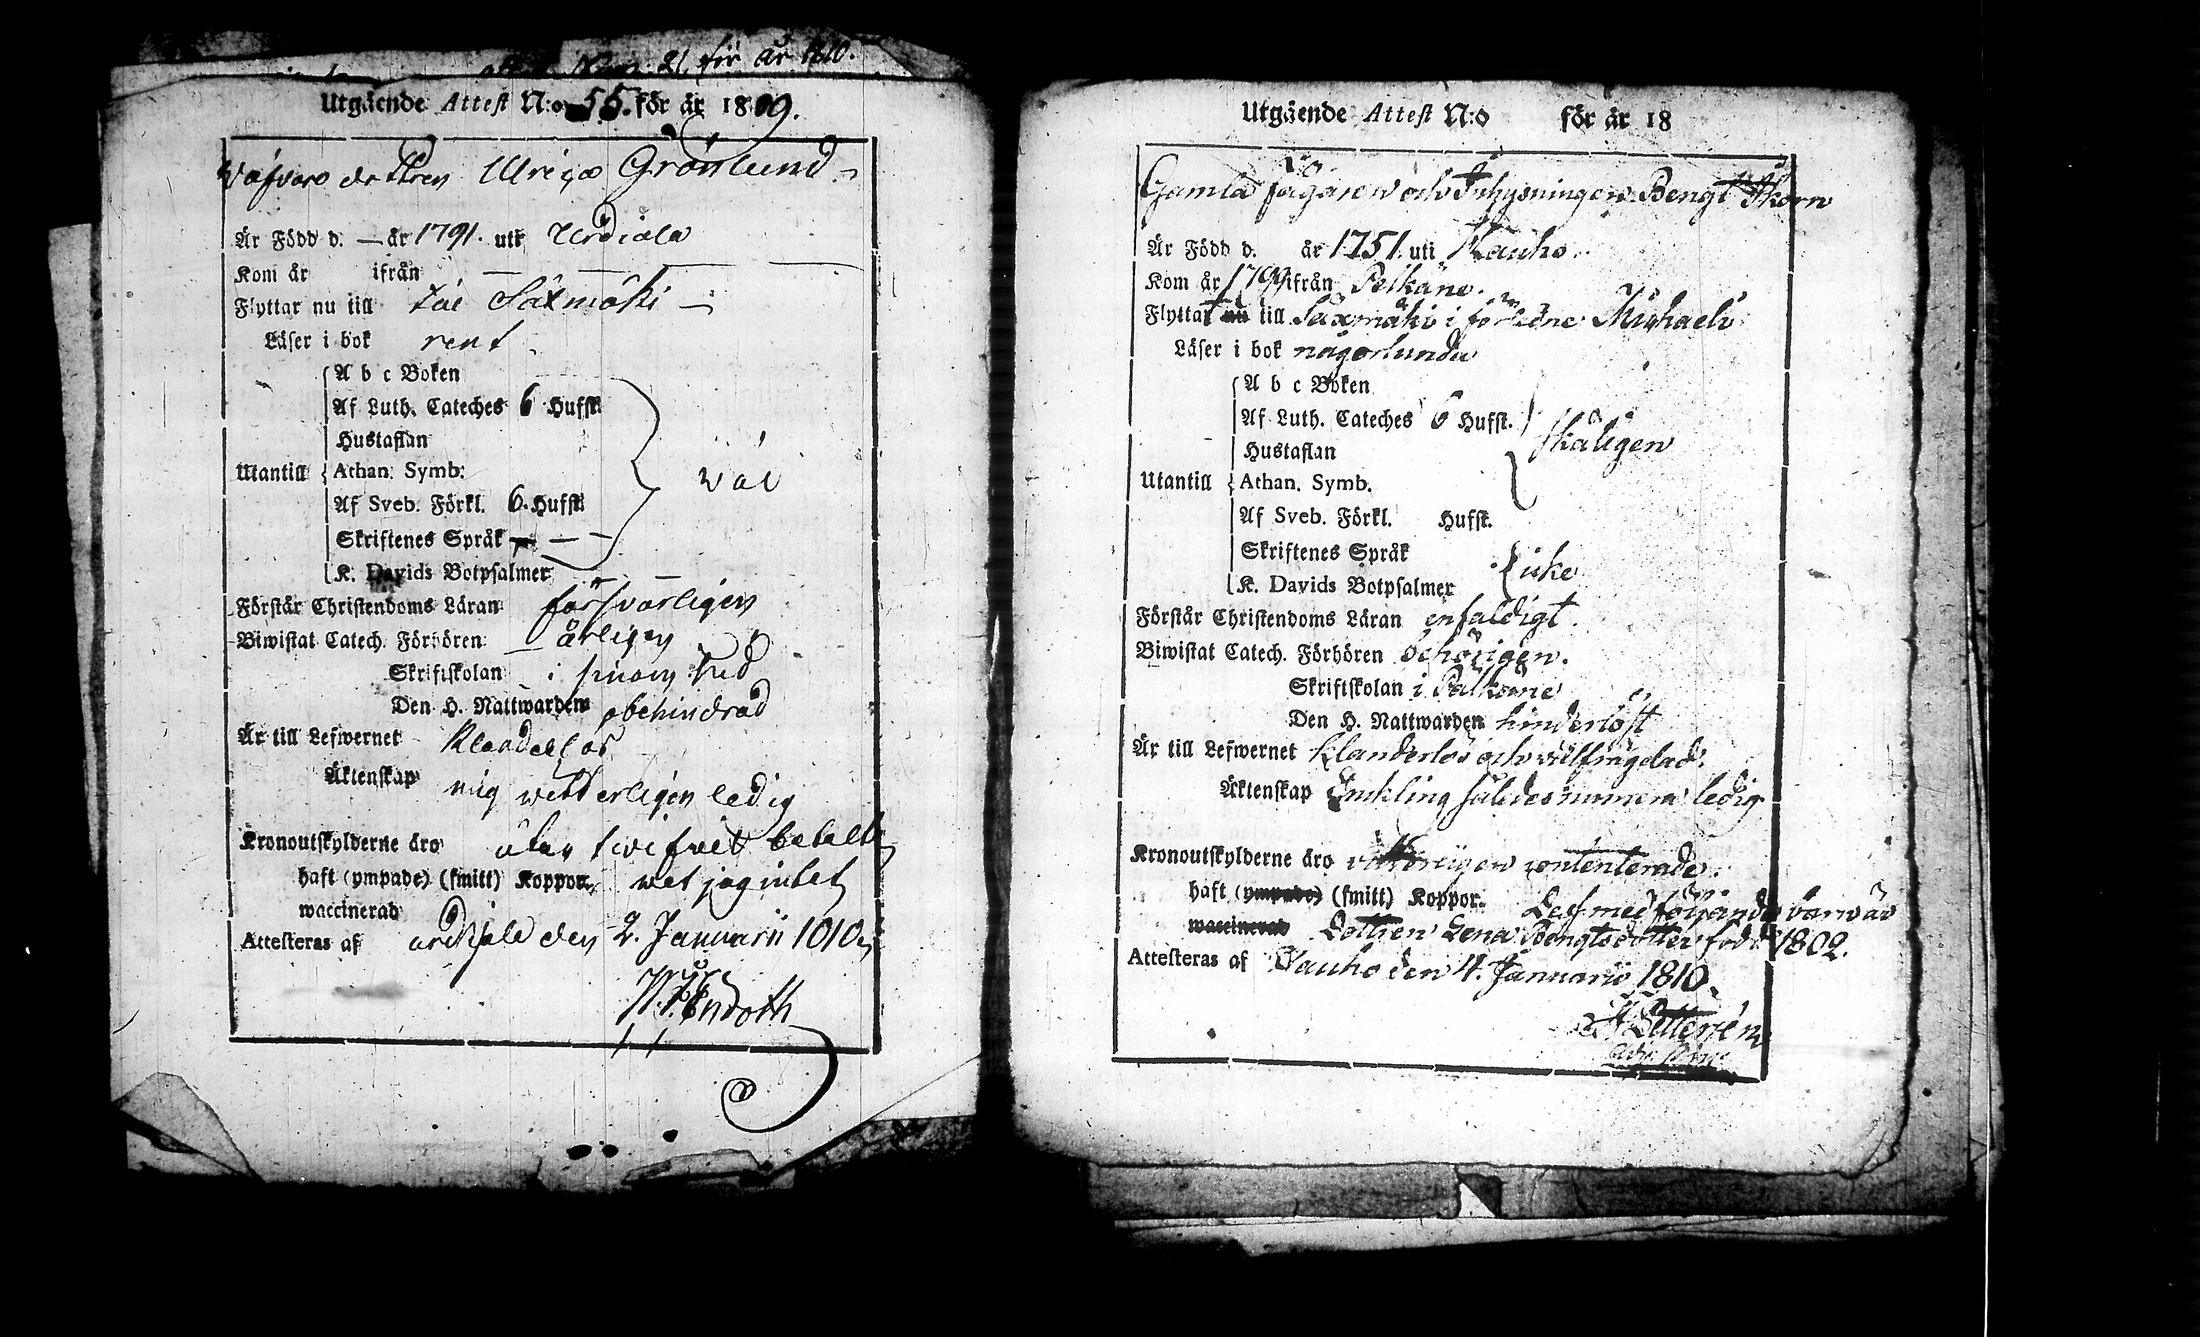 Num: 21 för år 1810.
Utgående Attest N:o 55. för år 1809.
Wäfvare dottren Ulrica Grönlund
Är Född d. — år 1791. uti Urdiala
Kom år ifrån — — — —
Flyttar nu till till Säxmäki —
Läser i bok rent
A b c Boken
Af Luth. Cateches 6 Hufst.
Hustaflan
Utantill Athan. Symb. wäl
Af Sveb. Förkl. 6. Hufst.
Skriftenes Språk — —
K. Davids Botpsalmer
Förstår Christendoms Läran försvarligen
Biwistat Catech. Förhören årligen
Skriftskolan i sinom tid
Den H. Nattwarden obehindrad
Är till Lefwernet Klanderlös
Äktenskap mig wetterligen ledig
Kronoutskylderne äro utan twifvel betalte
haft (ympade) (smitt) Koppor. wet jag intet
waccinerad
Attesteras af urdiala den 2. Januarii 1810,
Utgående Attest N:o för år 18
Gamla Jägaren och Inhysningen Bengt Skorn
Är Född d. år 1751. uti Kauho.
Kom år 179 ifrån Pelkäne.
Flyttat nu till Saxmäki i förledne Michaeli
Läser i bok någorlunda
A b c Boken
Af Luth. Cateches 6 Hufst.
Hustaflan skäligen
Utantill Athan. Symb.
Af Sveb. Förkl. Hufst.
Skriftenes Språk icke
K. Davids Botpsalmer
Förstår Christendoms Läran enfaldigt.
Biwistat Catech. Förhören behörigen.
Skriftskolan i Palkäne
Den H. Nattwarden hinderlöst
Är till Lefwernet klanderlös och wälfrägdad.
Äktenskap Enkling således numera ledig
Kronoutskylderne äro vetterligen contenterade.
haft (ympade) (smitt) Koppor. Desf medföljande barn är
waccinerad Dottren Lena Bengtsdotter född 1802.
Attesteras af Kauho den 4. Januarii 1810.